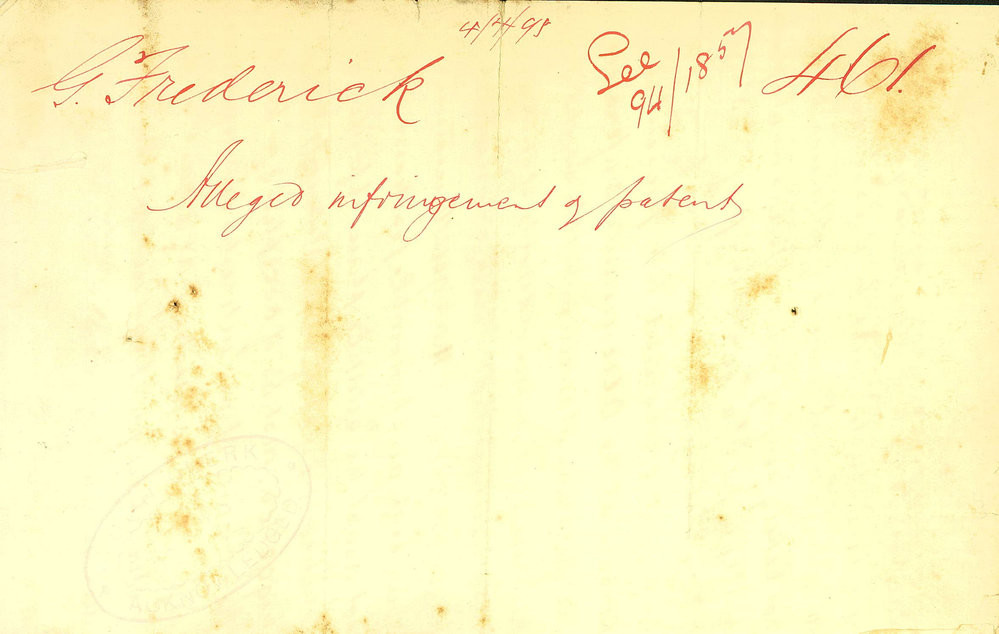 4/4/98
G. Frederick
See 94/1857
461.
Alleged infringement of patent
CLERK
ACKNOWLEDGED